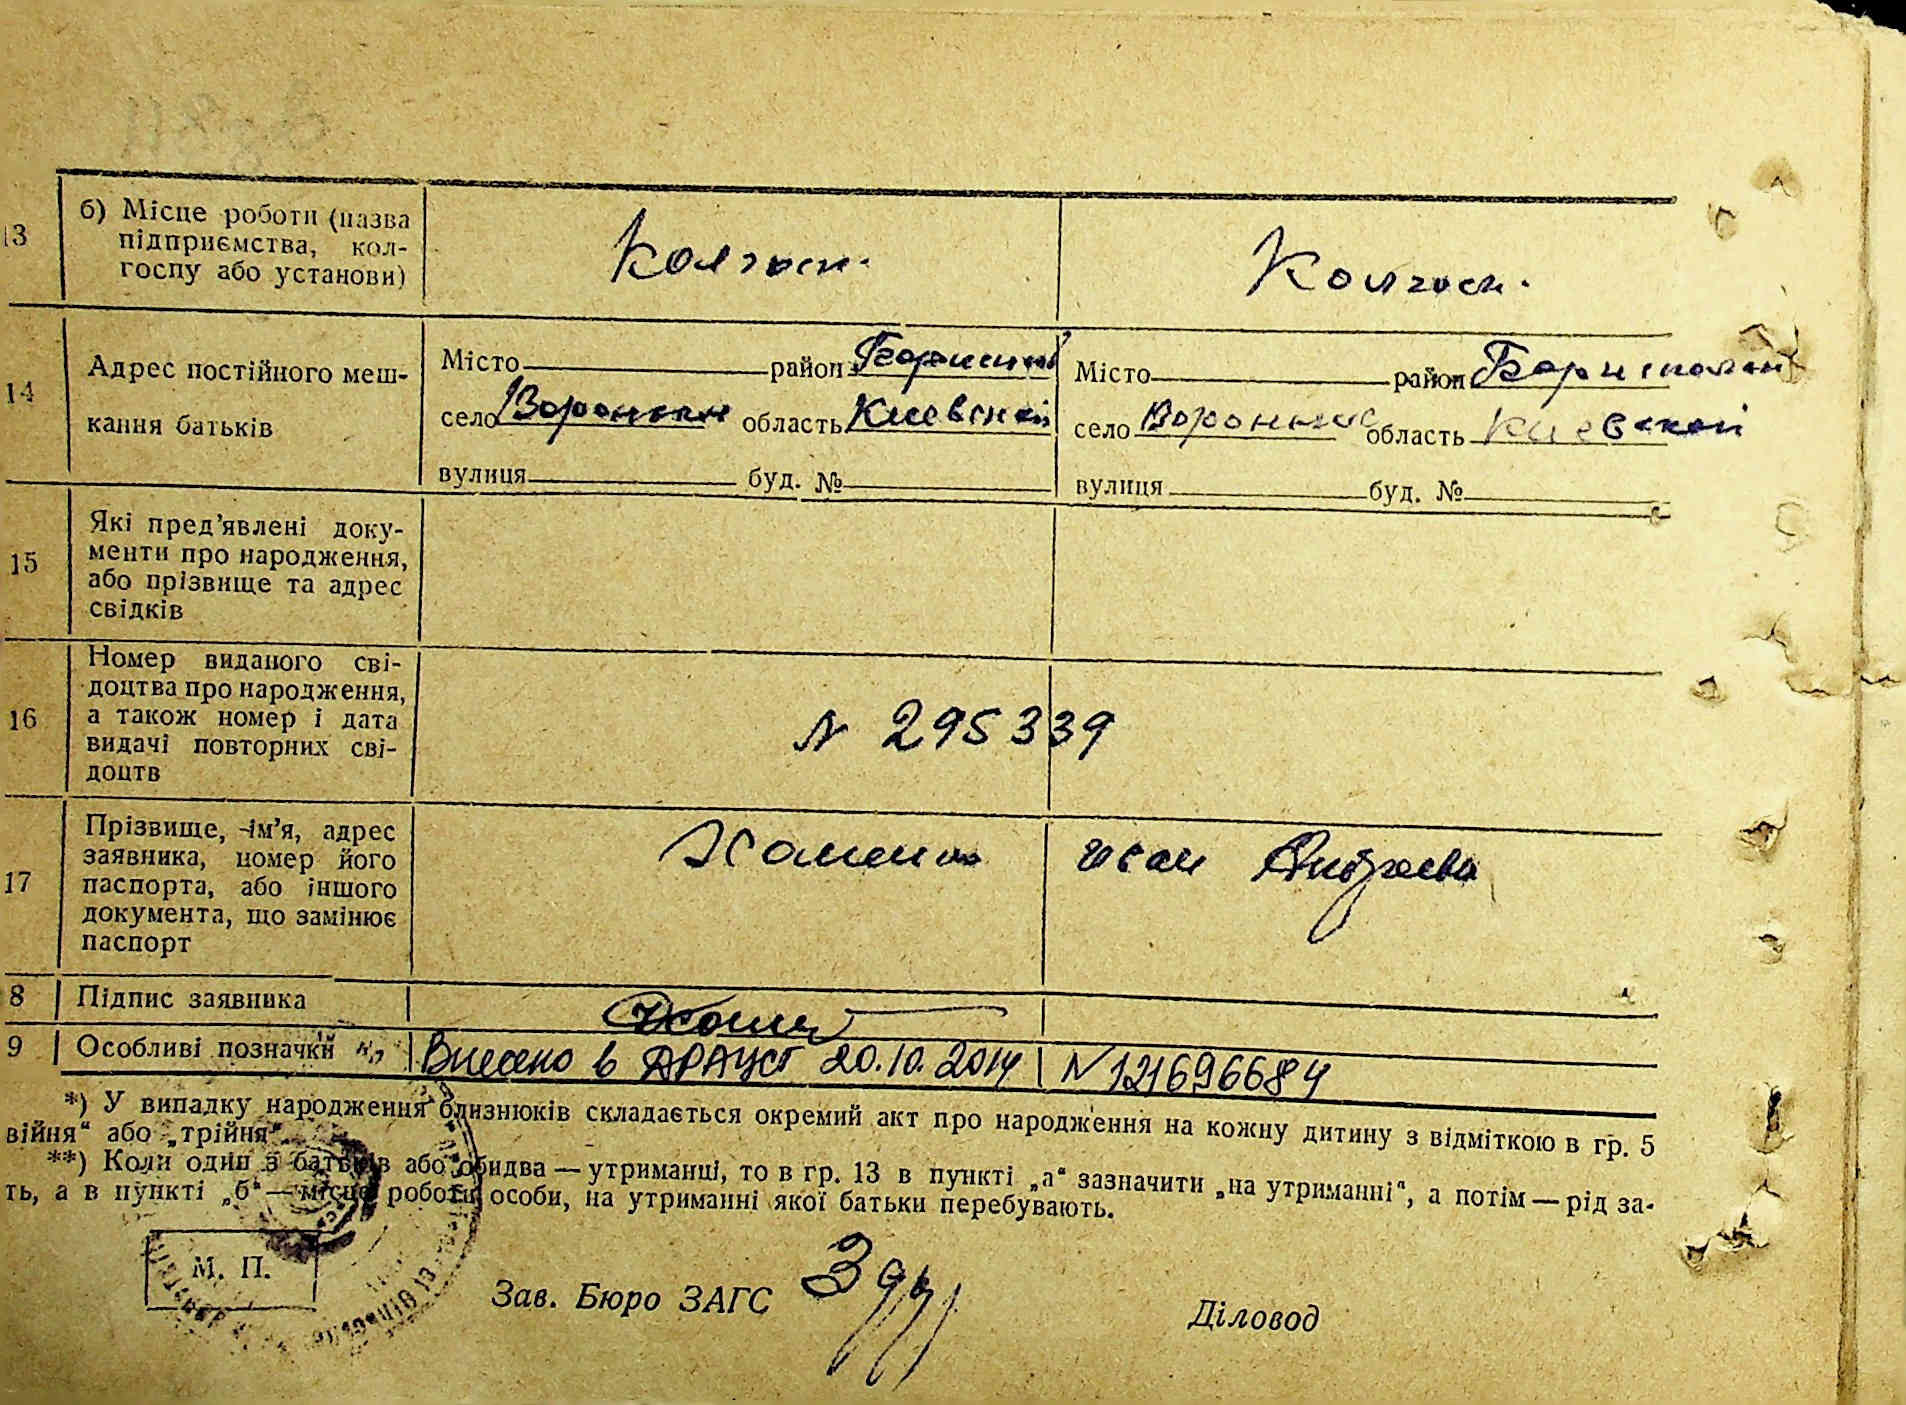 13
б) Місце роботи (назва
підприємства, кол-
госпу або установи)
Колгосп.
Колгосп.
14
Адрес постійного меш-
кання батьків
Місто район
село Вороньки область Киевской
вулиця буд. №
Місто район
село Вороньки область Киевской
вулиця буд. №
15
Які пред'явлені доку-
менти про народження,
або прізвище та адрес
свідків
16
Номер виданого сві-
доцтва про народження,
а також номер і дата
видачі повторних сві-
доцтв
N 295339
17
Прізвище, ім'я, адрес
заявника, номер його
паспорта, або іншого
документа, що замінює
паспорт
Хоменко Иван Андреевич
8 Підпис заявника
9 Особливі позначки Внесено в ДРАЦСГ 20.10.2014 N121696684
*) У випадку народження близнюків складається окремий акт про народження на кожну дитину з відміткою в гр. 5
війня“ або „трійня“.
**) Коли один з батьків або обидва — утриманці, то в гр. 13 в пункті „а“ зазначити „на утриманні“, а потім — рід за-
ть, а в пункті „б“ — місце роботи особи, на утриманні якої батьки перебувають.
М. П.
Зав. Бюро ЗАГС
Діловод